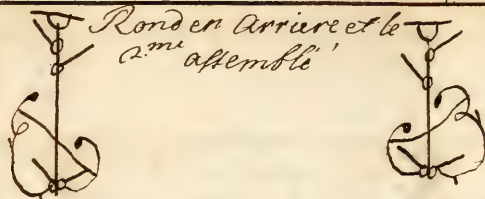 Rond en arriere et le
2.me assemblé